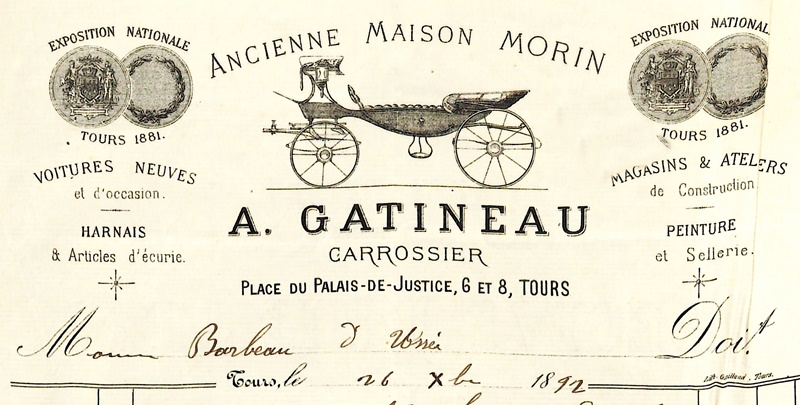 EXPOSITION NATIONALE
TOURS 1881.
VOITURES NEUVES
et d'occasion.
HARNAIS
& Articles d'écurie.
ANCIENNE MAISON MORIN
A. GATINEAU
CARROSSIER
PLACE DU PALAIS-DE-JUSTICE, 6 ET 8, TOURS
EXPOSITION NATIONAL
TOURS 1881.
MAGASINS & ATELIERS
de Construction
PEINTURE
et Sellerie.
Barbeau d'Ussé Doit
Tours, le 26 Xbre 1892
Lith. Guilland, Tours.